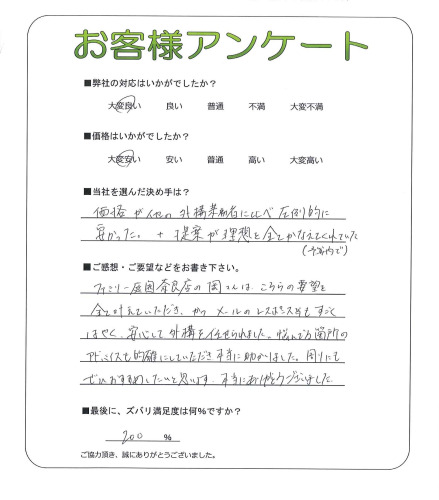 お客様アンケート
■弊社の対応はいかがでしたか？
大変良い 良い 普通 不満 大変不満
■価格はいかがでしたか？
大変安い 安い 普通 高い 大変高い
■当社を選んだ決め手は？
価格が他の外構業者に比べ圧倒的に
安かった。+ 提案が理想を全てかなえてくれていた
(予算内で)
■ご感想・ご要望などをお書き下さい。
ファミリー庭園奈良店の岡さんは、こちらの要望を
全て叶えていただき、かつメールのレスポンスもすごく
はやく、安心して外構を任せられました。悩んでる箇所の
アドバイスも的確にしていただき本当に助かりました。周りにも
ぜひおすすめしたいと思います。本当にありがとうございました
■最後に、ズバリ満足度は何％ですか？
200 ％
ご協力頂き、誠にありがとうございました。